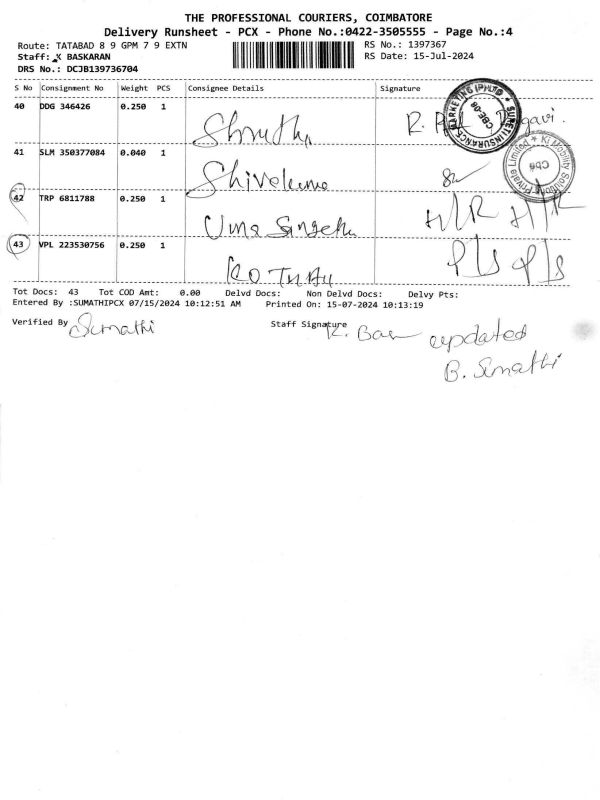 THE PROFESSIONAL COURIERS, COIMBATORE
Delivery Runsheet - PCX - Phone No.:0422-3505555 - Page No.:4
Route: TATABAD 8 9 GPM 7 9 EXTN
RS No.: 1397367
Staff: K BASKARAN
RS Date: 15-Jul-2024
DRS No.: DCJB139736704
S No Consignment No Weight PCS Consignee Details Signature
40 DDG 346426 0.250 1
Shruthi R.
41 SLM 350377084 0.040 1
Shivakumar
42 TRP 6811788 0.250 1
Uma H/R H/R
43 VPL 223530756 0.250 1
P/S P/S
Tot Docs: 43 Tot COD Amt: 0.00 Delvd Docs: Non Delvd Docs: Delvy Pts:
Entered By :SUMATHIPCX 07/15/2024 10:12:51 AM Printed On: 15-07-2024 10:13:19
Verified By Sumathi
Staff Signature K. Bas
updated
B. Sumathi
MARKETING (P) LTD ★ SUMETI INSURANCE
CBE-08
Ki Mobility Solutions Private Limited ★
CBE